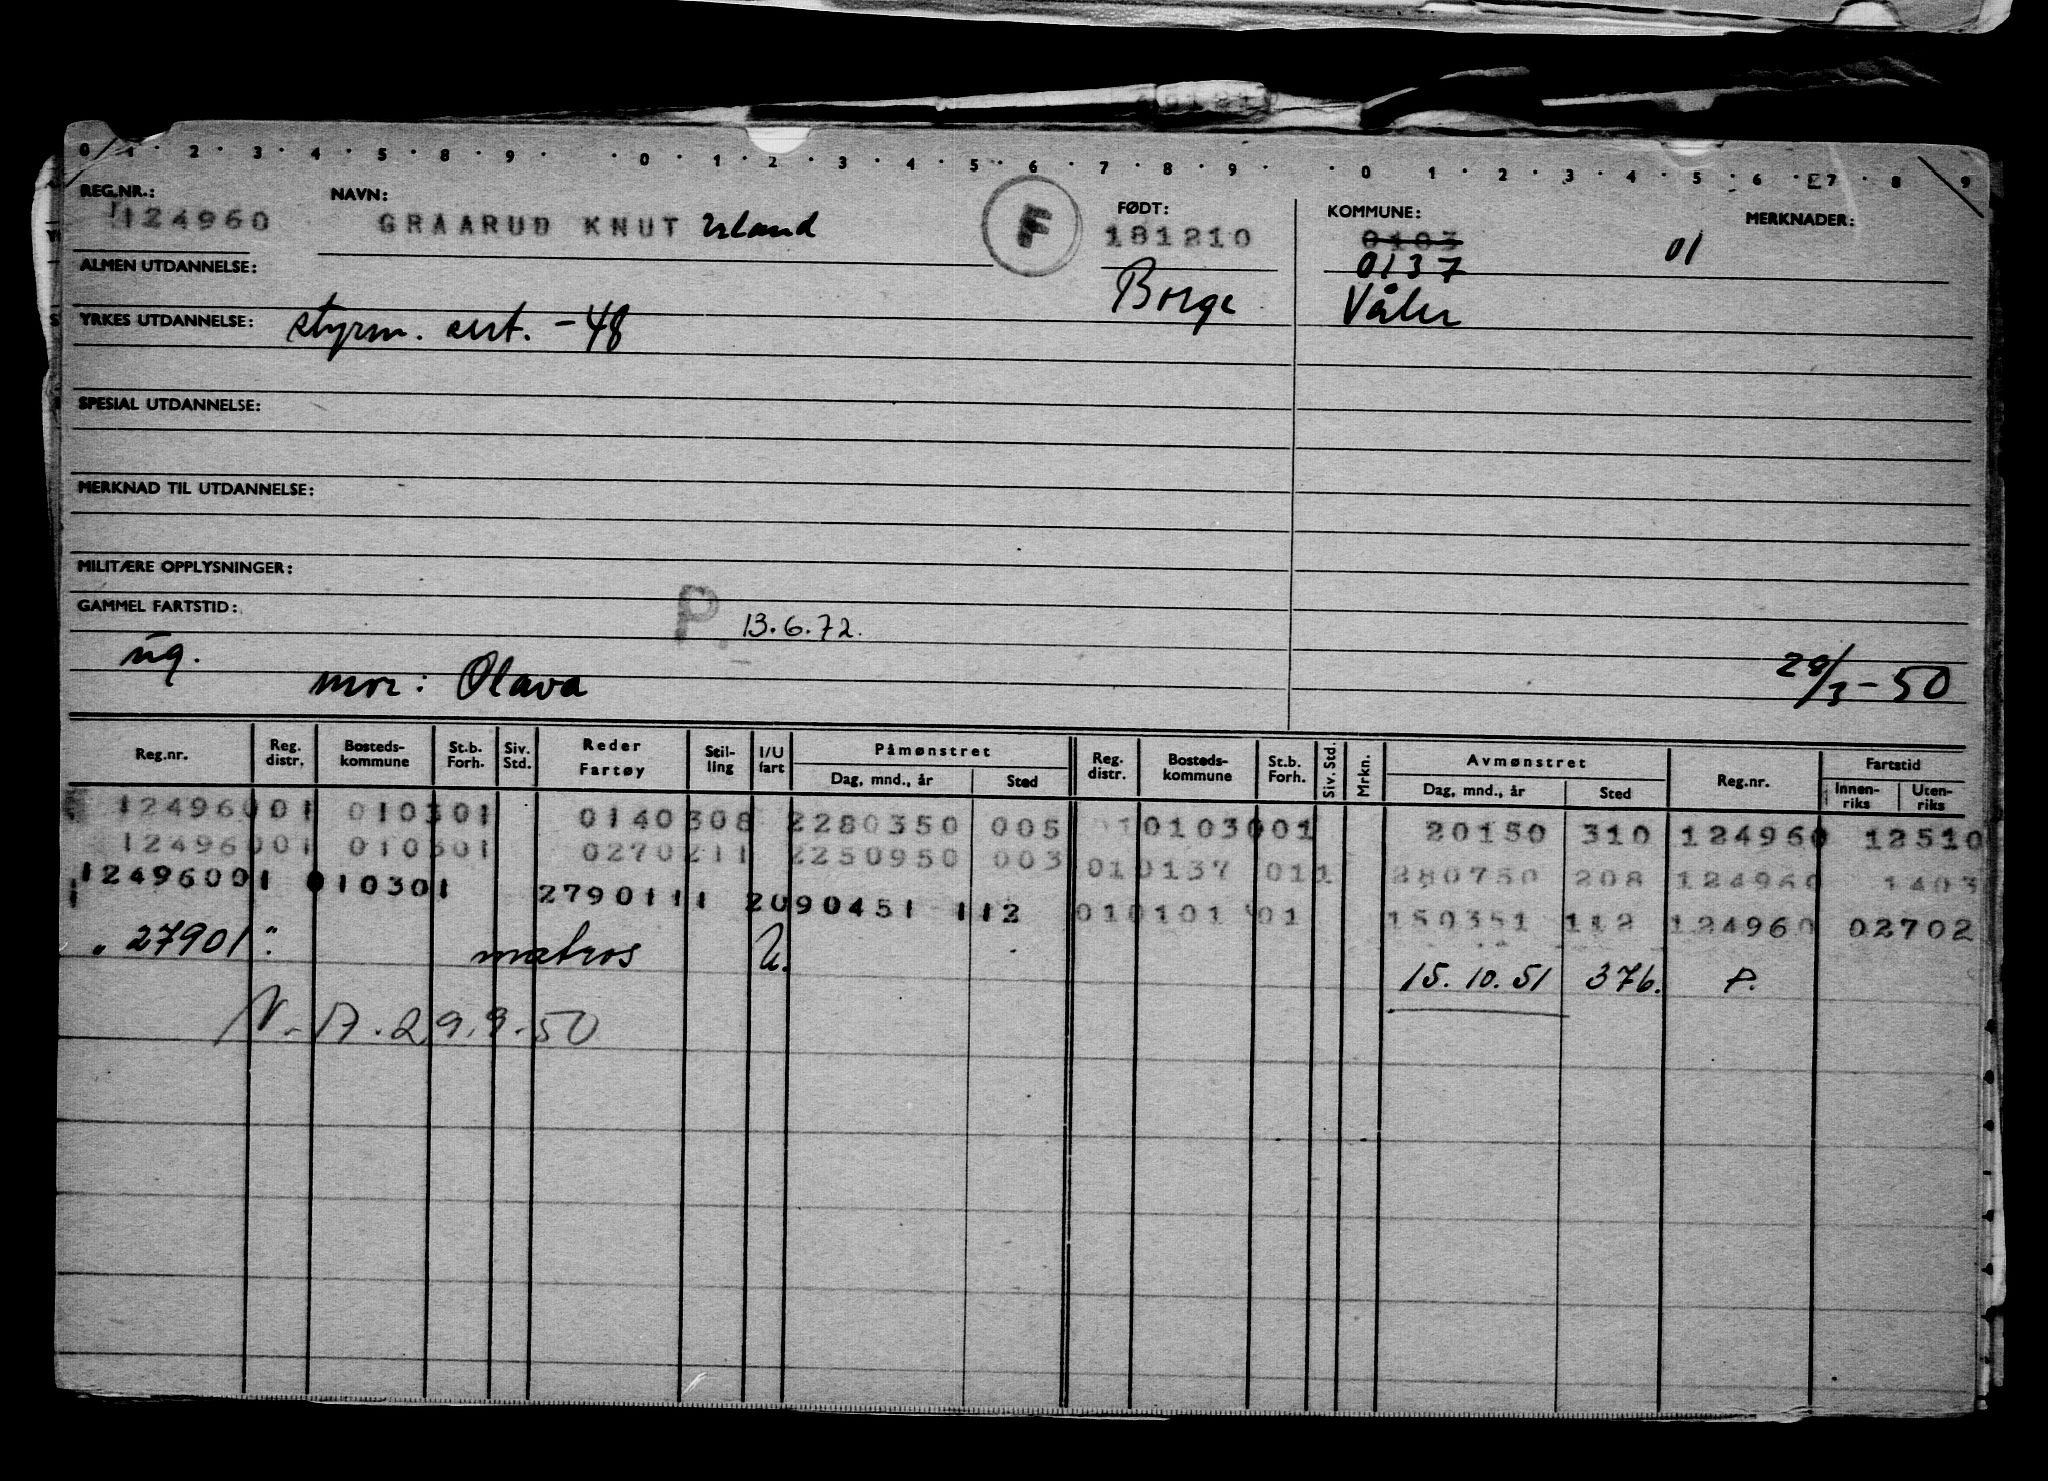 0 1 · 2 · 3 · 4 · 5 · 8 · 9 · · 0 · 1 · 2 · 3 · 4 · 5 · 6 · 7 · 8 · 9 · · 0 · 1 · 2 · 3 · 4 · 5 · 6 · 7 · 8 · 9
REG.NR.: NAVN: F FØDT: KOMMUNE: MERKNADER:
124960 GRAARUD KNUT Erland 181210 0103 01
ALMEN UTDANNELSE: Borge 0137
YRKES UTDANNELSE: styrm. sert. -48 Våler
SPESIAL UTDANNELSE:
MERKNAD TIL UTDANNELSE:
MILITÆRE OPPLYSNINGER:
GAMMEL FARTSTID: P. 13.6.72.
ug.
mor: Olava 28/3-50
Reg.nr. Reg. distr. Bosteds-kommune St.b. Forh. Siv. Std. Reder Fartøy Stil-ling I/U fart Påmønstret Dag, mnd., år Sted Reg. distr. Bosteds-kommune St.b. Forh. Siv. Std. Mrkn. Avmønstret Dag, mnd., år Sted Reg.nr. Fartstid Innen-riks Uten-riks
12496001 010301 0140308 2280350 005 010103001 20150 310 124960 12510
12496001 010301 0270211 2250950 003 010137 011 280750 208 124960 1403
12496001 010301 2790111 2090451 112 010101 01 150351 112 124960 02702
" 27901 " matros U. 15.10.51 376. P.
N.A.29.9.50